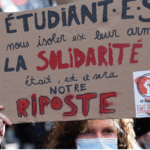 ÉTUDIANT·E·S
nous isoler est leur arme
LA SOLIDARITÉ
était, est et sera
NOTRE
RIPOSTE